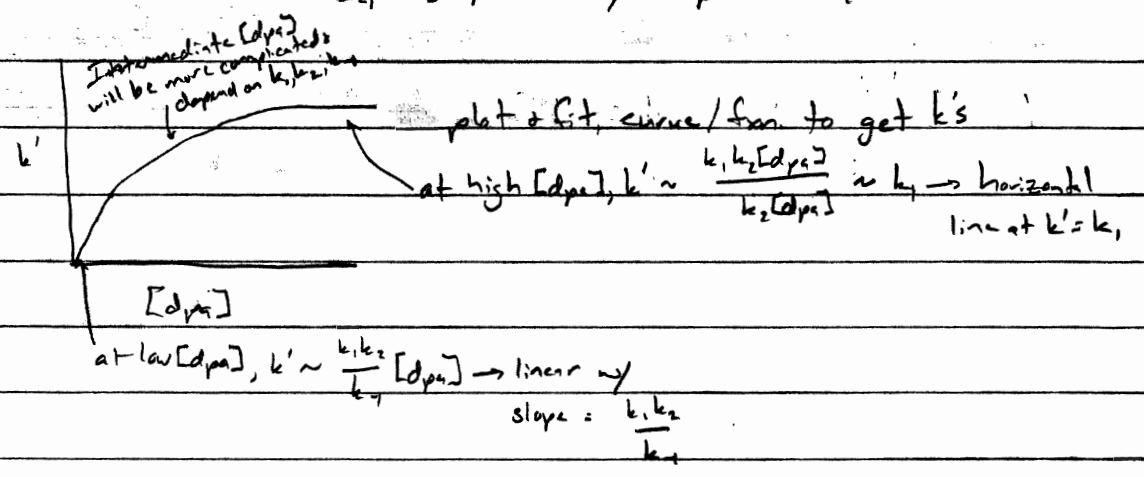 Intermediate [dpa]
will be more complicated &
depend on k₁, k₂, k₋₁
plot & fit, curve / from to get k's
k'
at high [dpa], k' ~ k₁k₂[dpa] / k₂[dpa] ~ k₁ → horizontal
line at k' = k₁
[dpa]
at low [dpa], k' ~ k₁k₂ / k₋₁ [dpa] → linear w/
slope = k₁k₂ / k₋₁